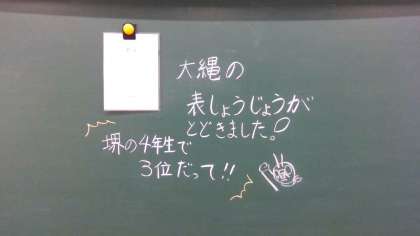 大縄の
表しょうじょうが
とどきました。
堺の4年生で
3位だって!!